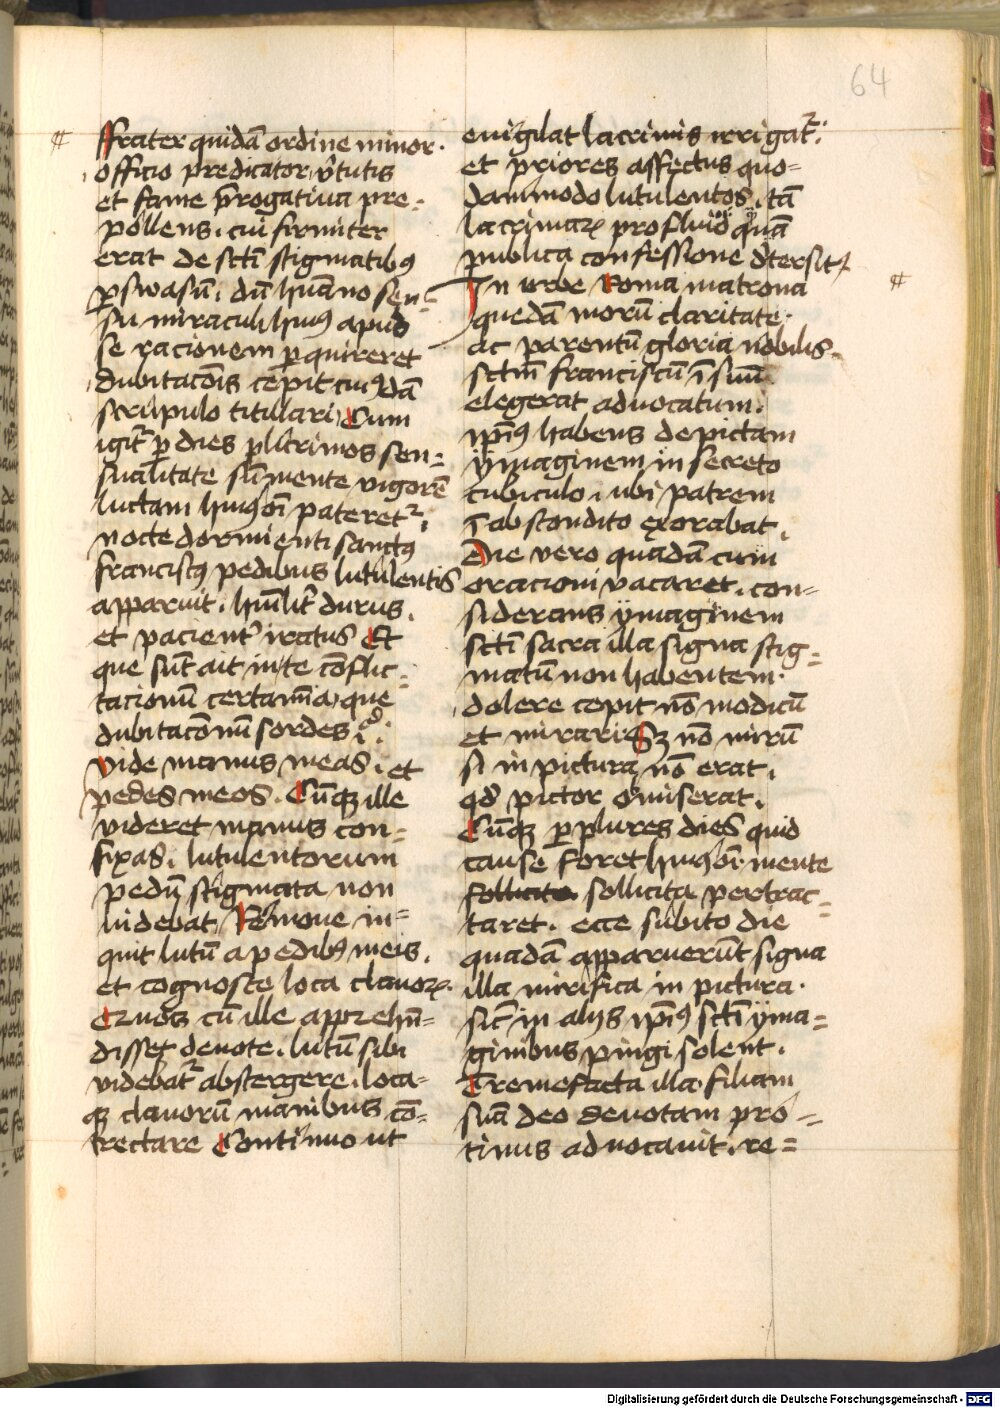 64
ffrater quidā ordine minor·
officio predicator v̄tutis
et fame p̄rogatiua pre⹀
pollens. cū firmiter
erat de scti stigmatibꝰ
ꝑswasū. dū hūano sen⹀
su miraculi huiꝰ apud
se racionem ꝑquireret
dubitacōis cepit cuiꝰdā
scrupulo titillari Cum
igit᷑ ꝑ dies pl̄rimos sen⹀
sualitate sū mente vigorē
luctam huiꝰōi pateret᷑.
nocte dormienti sanctꝰ
franciscꝰ pedibus lutulentis
apparuit. hūlit᷑ durus.
et pacient᷑ iratus Et
que sūt ait in te cōflic⹀
tacionū certamīa que
dubitacōnū sordes
vide manus meas. et
pedes meos. Cūqꝫ ille
videret manus con⹀
fixas. lutulentorum
pedū stigmata non
videbat Remoue in⹀
quit lutū a pedibꝰ meis.
et cognosce loca clauoꝝ.
Quos cū ille apprehn̄⹀
disset deuote. lutū sibi
videbat᷑ abstergere. loca⹀
qꝫ clauorū manibus cō⹀
trectare Continuo ut
euigilat lacrimis irrigat᷑.
et priores affectus quo⹀
dammodo lutulentos. tā
lacrimaꝝ profluuio quā
publica confessione detersit
In urbe Roma matrona
quedā morū claritate·
ac parentū gloria nobilis.
sctm̄ franciscū ī suū
elegerat aduocatum.
ip̄iꝰ habens depictam
ÿmaginem in secreto
cubiculo. ubi patrem
ī abscondito exorabat.
Die vero quadā cum
oracioni vacaret. con⹀
siderans ÿmaginem
scti sacra illa signa stig⹀
matū non habentem·
dolere cepit nō modicū
et mirari Sꝫ nō mirū
si in pictura nō erat.
qd̄ pictor omiserat.
Cūqꝫ ꝑ plures dies quid
cause foret huiꝰōi mente
sollicita sollicita pertrac⹀
taret. ecce subito die
quadā apparuerūt signa
illa mirifica in pictura·
sic̄ in alijs ip̄iꝰ scti ÿma⹀
ginibus pingi solent.
Tremefacta illa filiam
suā deo deuotam pro⹀
tinus aduocauit. re⹀
Digitalisierung gefördert durch die Deutsche Forschungsgemeinschaft - DFG